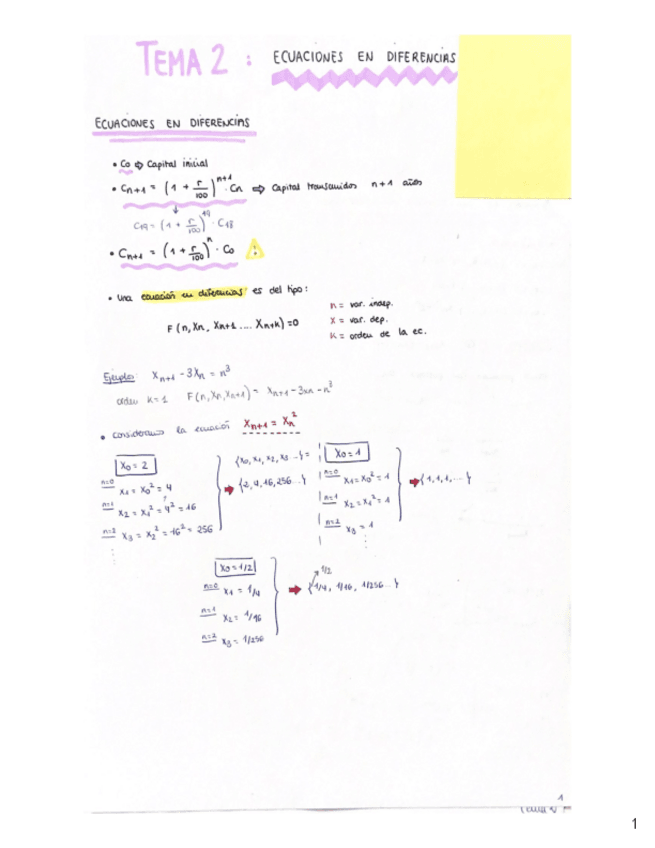 TEMA 2 : ECUACIONES EN DIFERENCIAS
ECUACIONES EN DIFERENCIAS
• Co ⇨ Capital inicial
• Cn+1 = (1 + r/100)^n+1 · Cn ⇨ Capital transcurridos n+1 años
↓
C19 = (1 + r/100)^19 · C18
• Cn+1 = (1 + r/100)^n · Co
• una ecuación en diferencias es del tipo:
F (n, Xn, Xn+1 .... Xn+k) = 0
n = var. indep.
X = var. dep.
K = orden de la ec.
Ejemplo: Xn+1 - 3Xn = n³
orden K=1 F(n, Xn, Xn+1) = Xn+1 - 3xn - n³
• consideramos la ecuación Xn+1 = Xn²
X0 = 2
n=0 X1 = X0² = 4
n=1 X2 = X1² = 4² = 16
n=2 X3 = X2² = 16² = 256
⋮
{X0, X1, X2, X3 ...} =
{2, 4, 16, 256 ...}
X0 = 1
n=0 X1 = X0² = 1
n=1 X2 = X1² = 1
n=2 X3 = 1
⋮
{1, 1, 1, ...}
X0 = 1/2
n=0 X1 = 1/4
n=1 X2 = 1/16
n=2 X3 = 1/256
1/2
{1/4, 1/16, 1/256 ...}
1
1